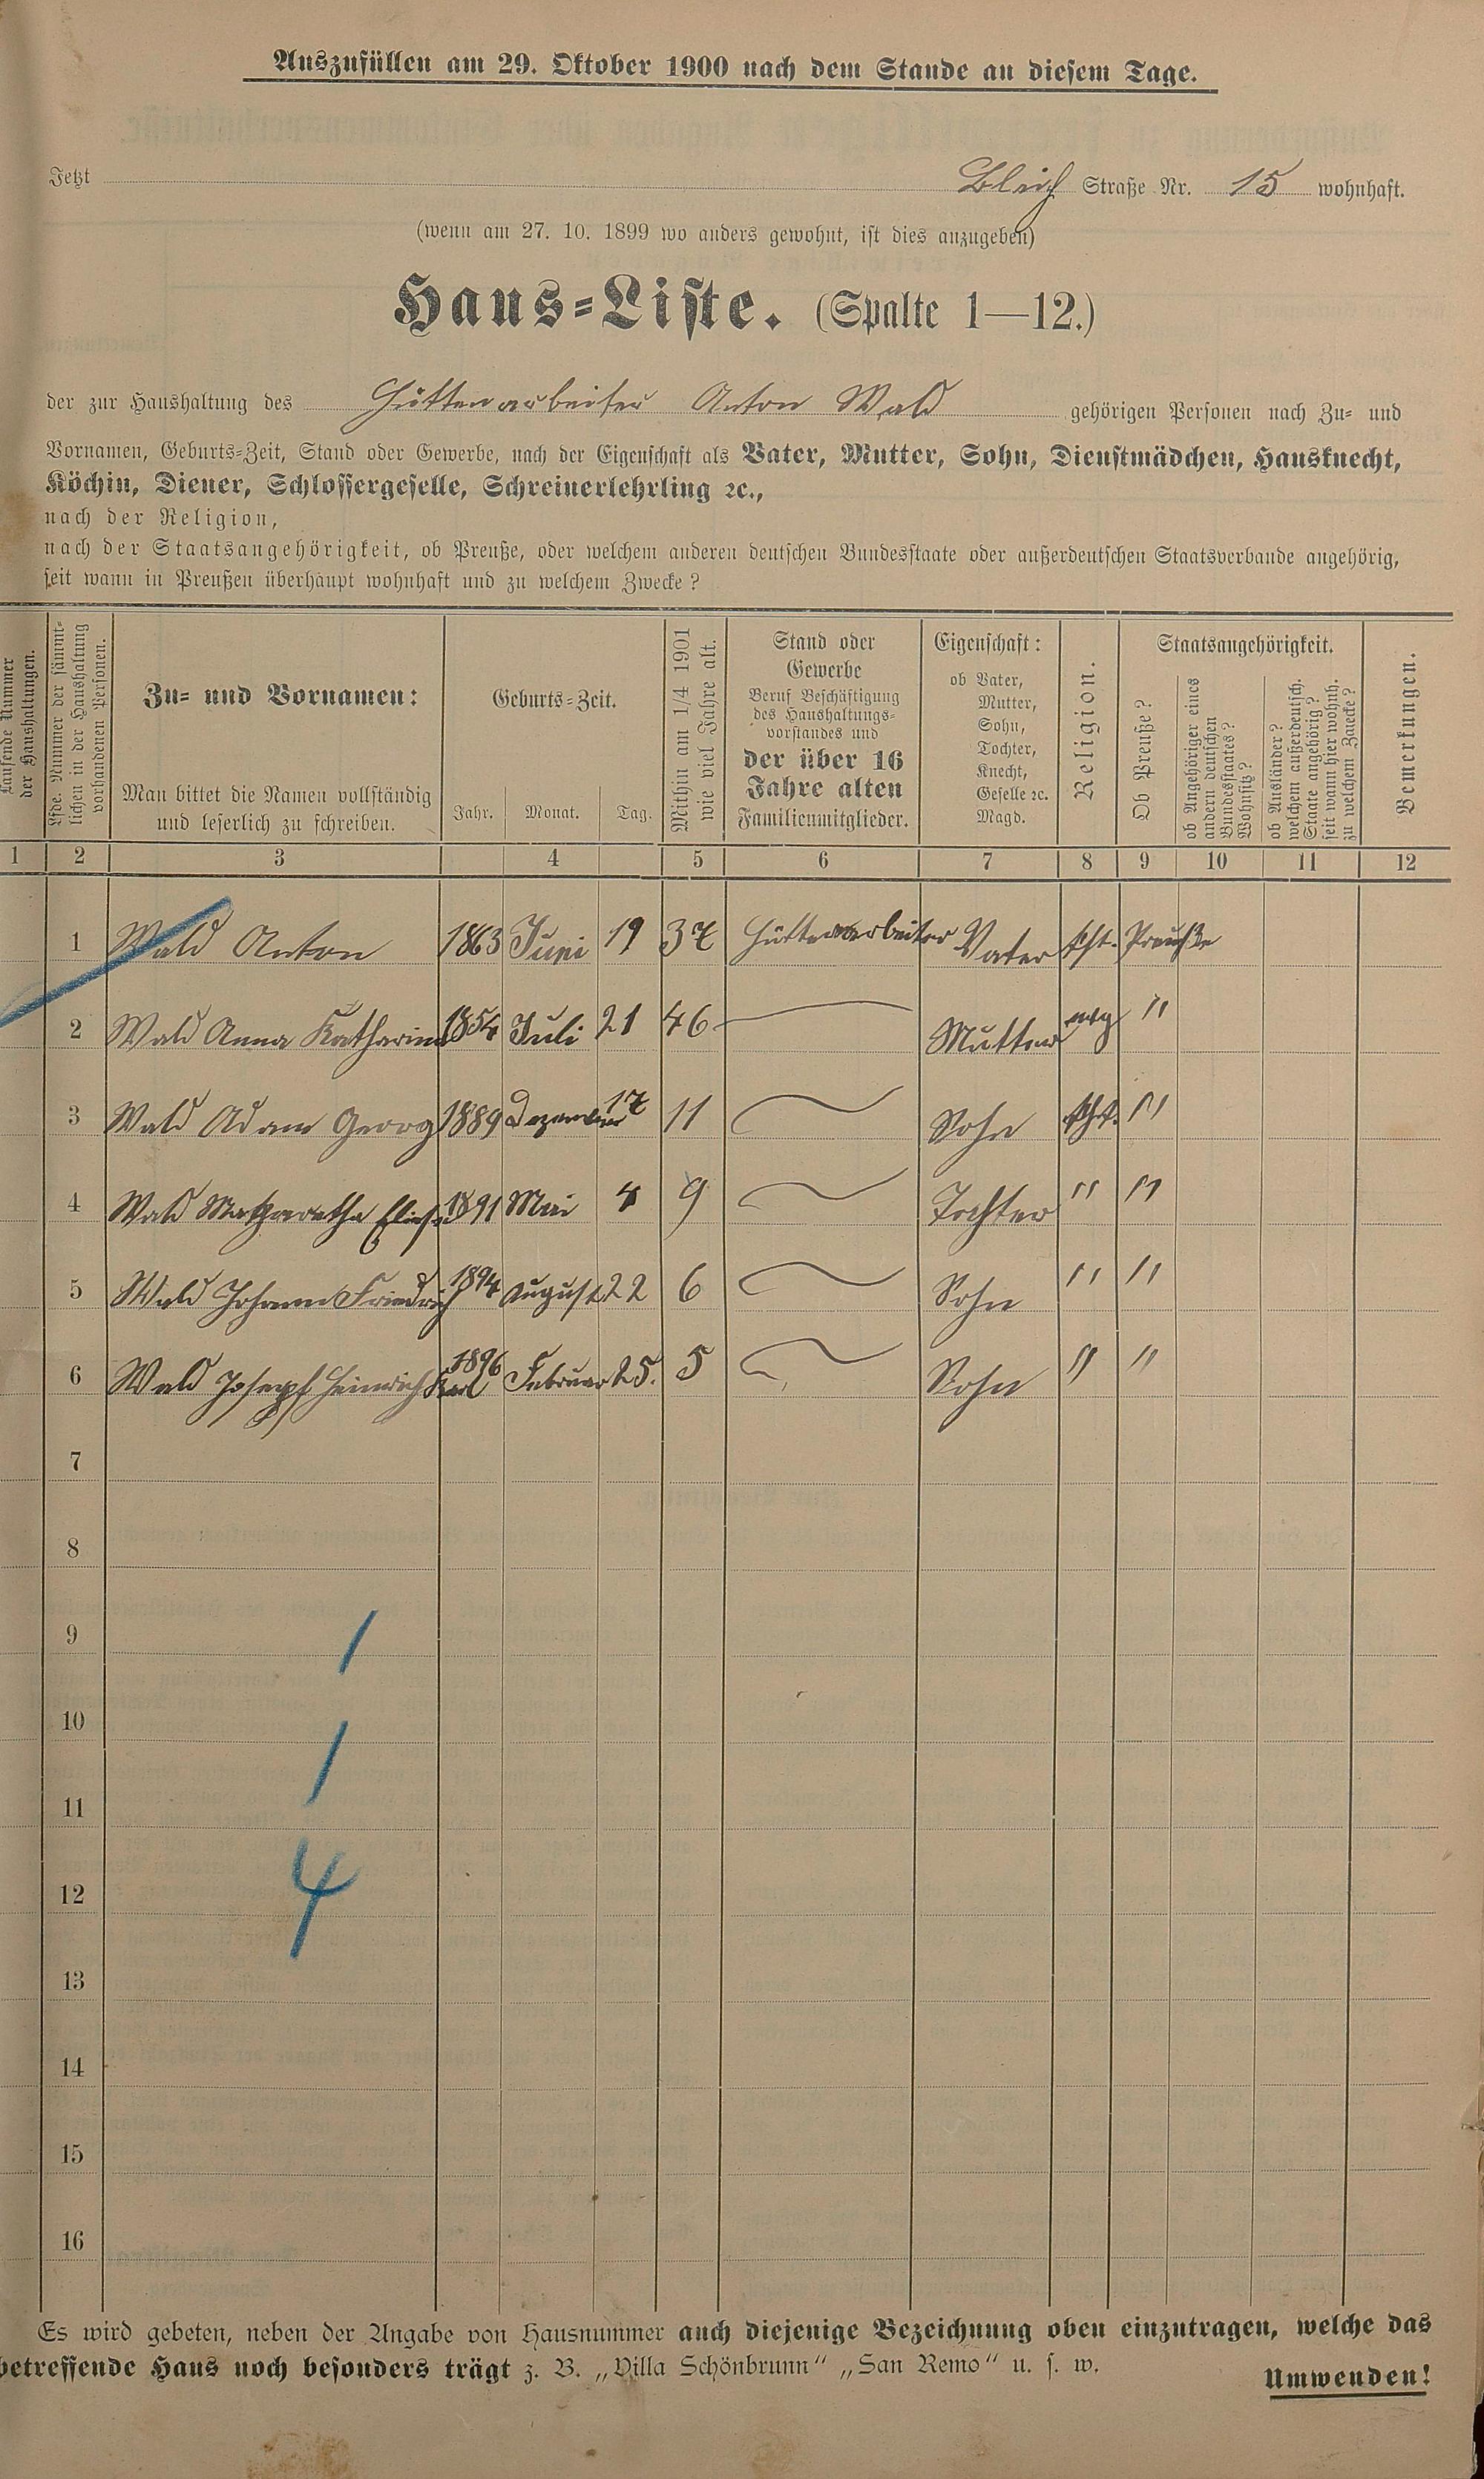 Auszufüllen am 29. Oktober 1900 nach dem Stande an diesem Tage.
Jetzt Bleich Straße Nr. 15 wohnhaft.
(wenn am 27. 10. 1899 wo anders gewohnt, ist dies anzugeben)
Haus-Liste. (Spalte 1—12.)
der zur Haushaltung des Hüttenarbeiter Anton Wald gehörigen Personen nach Zu- und
Vornamen, Geburts-Zeit, Stand oder Gewerbe, nach der Eigenschaft als Vater, Mutter, Sohn, Dienstmädchen, Hausknecht,
Köchin, Diener, Schlossergeselle, Schreinerlehrling ꝛc.,
nach der Religion,
nach der Staatsangehörigkeit, ob Preuße, oder welchem anderen deutschen Bundesstaate oder außerdeutschen Staatsverbande angehörig,
seit wann in Preußen überhaupt wohnhaft und zu welchem Zwecke?
Laufende Nummer
der Haushaltungen.
Lfde. Nummer der sämmt-
lichen in der Haushaltung
vorhandenen Personen.
Zu- und Vornamen:
Man bittet die Namen vollständig
und leserlich zu schreiben.
Geburts-Zeit.
Jahr. Monat. Tag.
Mithin am 1/4 1901
wie viel Jahre alt.
Stand oder
Gewerbe
Beruf Beschäftigung
des Haushaltungs-
vorstandes und
der über 16
Jahre alten
Familienmitglieder.
Eigenschaft:
ob Vater,
Mutter,
Sohn,
Tochter,
Knecht,
Geselle ꝛc.
Magd.
Religion.
Staatsangehörigkeit.
Ob Preuße?
ob Angehöriger eines
andern deutschen
Bundesstaates?
Wohnsitz?
ob Ausländer?
welchem außerdeutsch.
Staate angehörig?
seit wann hier wohnh.
zu welchem Zwecke?
Bemerkungen.
1 2 3 4 5 6 7 8 9 10 11 12
1 Wald Anton 1863 Juni 19 37 Hüttenarbeiter Vater kth. Preuße
2 Wald Anna Katharina 1854 Juli 21 46 Mutter evg "
3 Wald Adam Georg 1889 Dezember 17 11 Sohn kth. "
4 Wald Margaretha 1891 Mai 4 9 Tochter " "
5 Wald Johann Friedrich 1894 August 22 6 Sohn " "
6 Wald Joseph Heinrich Karl 1896 Februar 25. 5 Sohn " "
7
8
9
1
10
1
11
4
12
13
14
15
16
Es wird gebeten, neben der Angabe von Hausnummer auch diejenige Bezeichnung oben einzutragen, welche das
betreffende Haus noch besonders trägt z. B. „Villa Schönbrunn" „San Remo" u. s. w.
Umwenden!